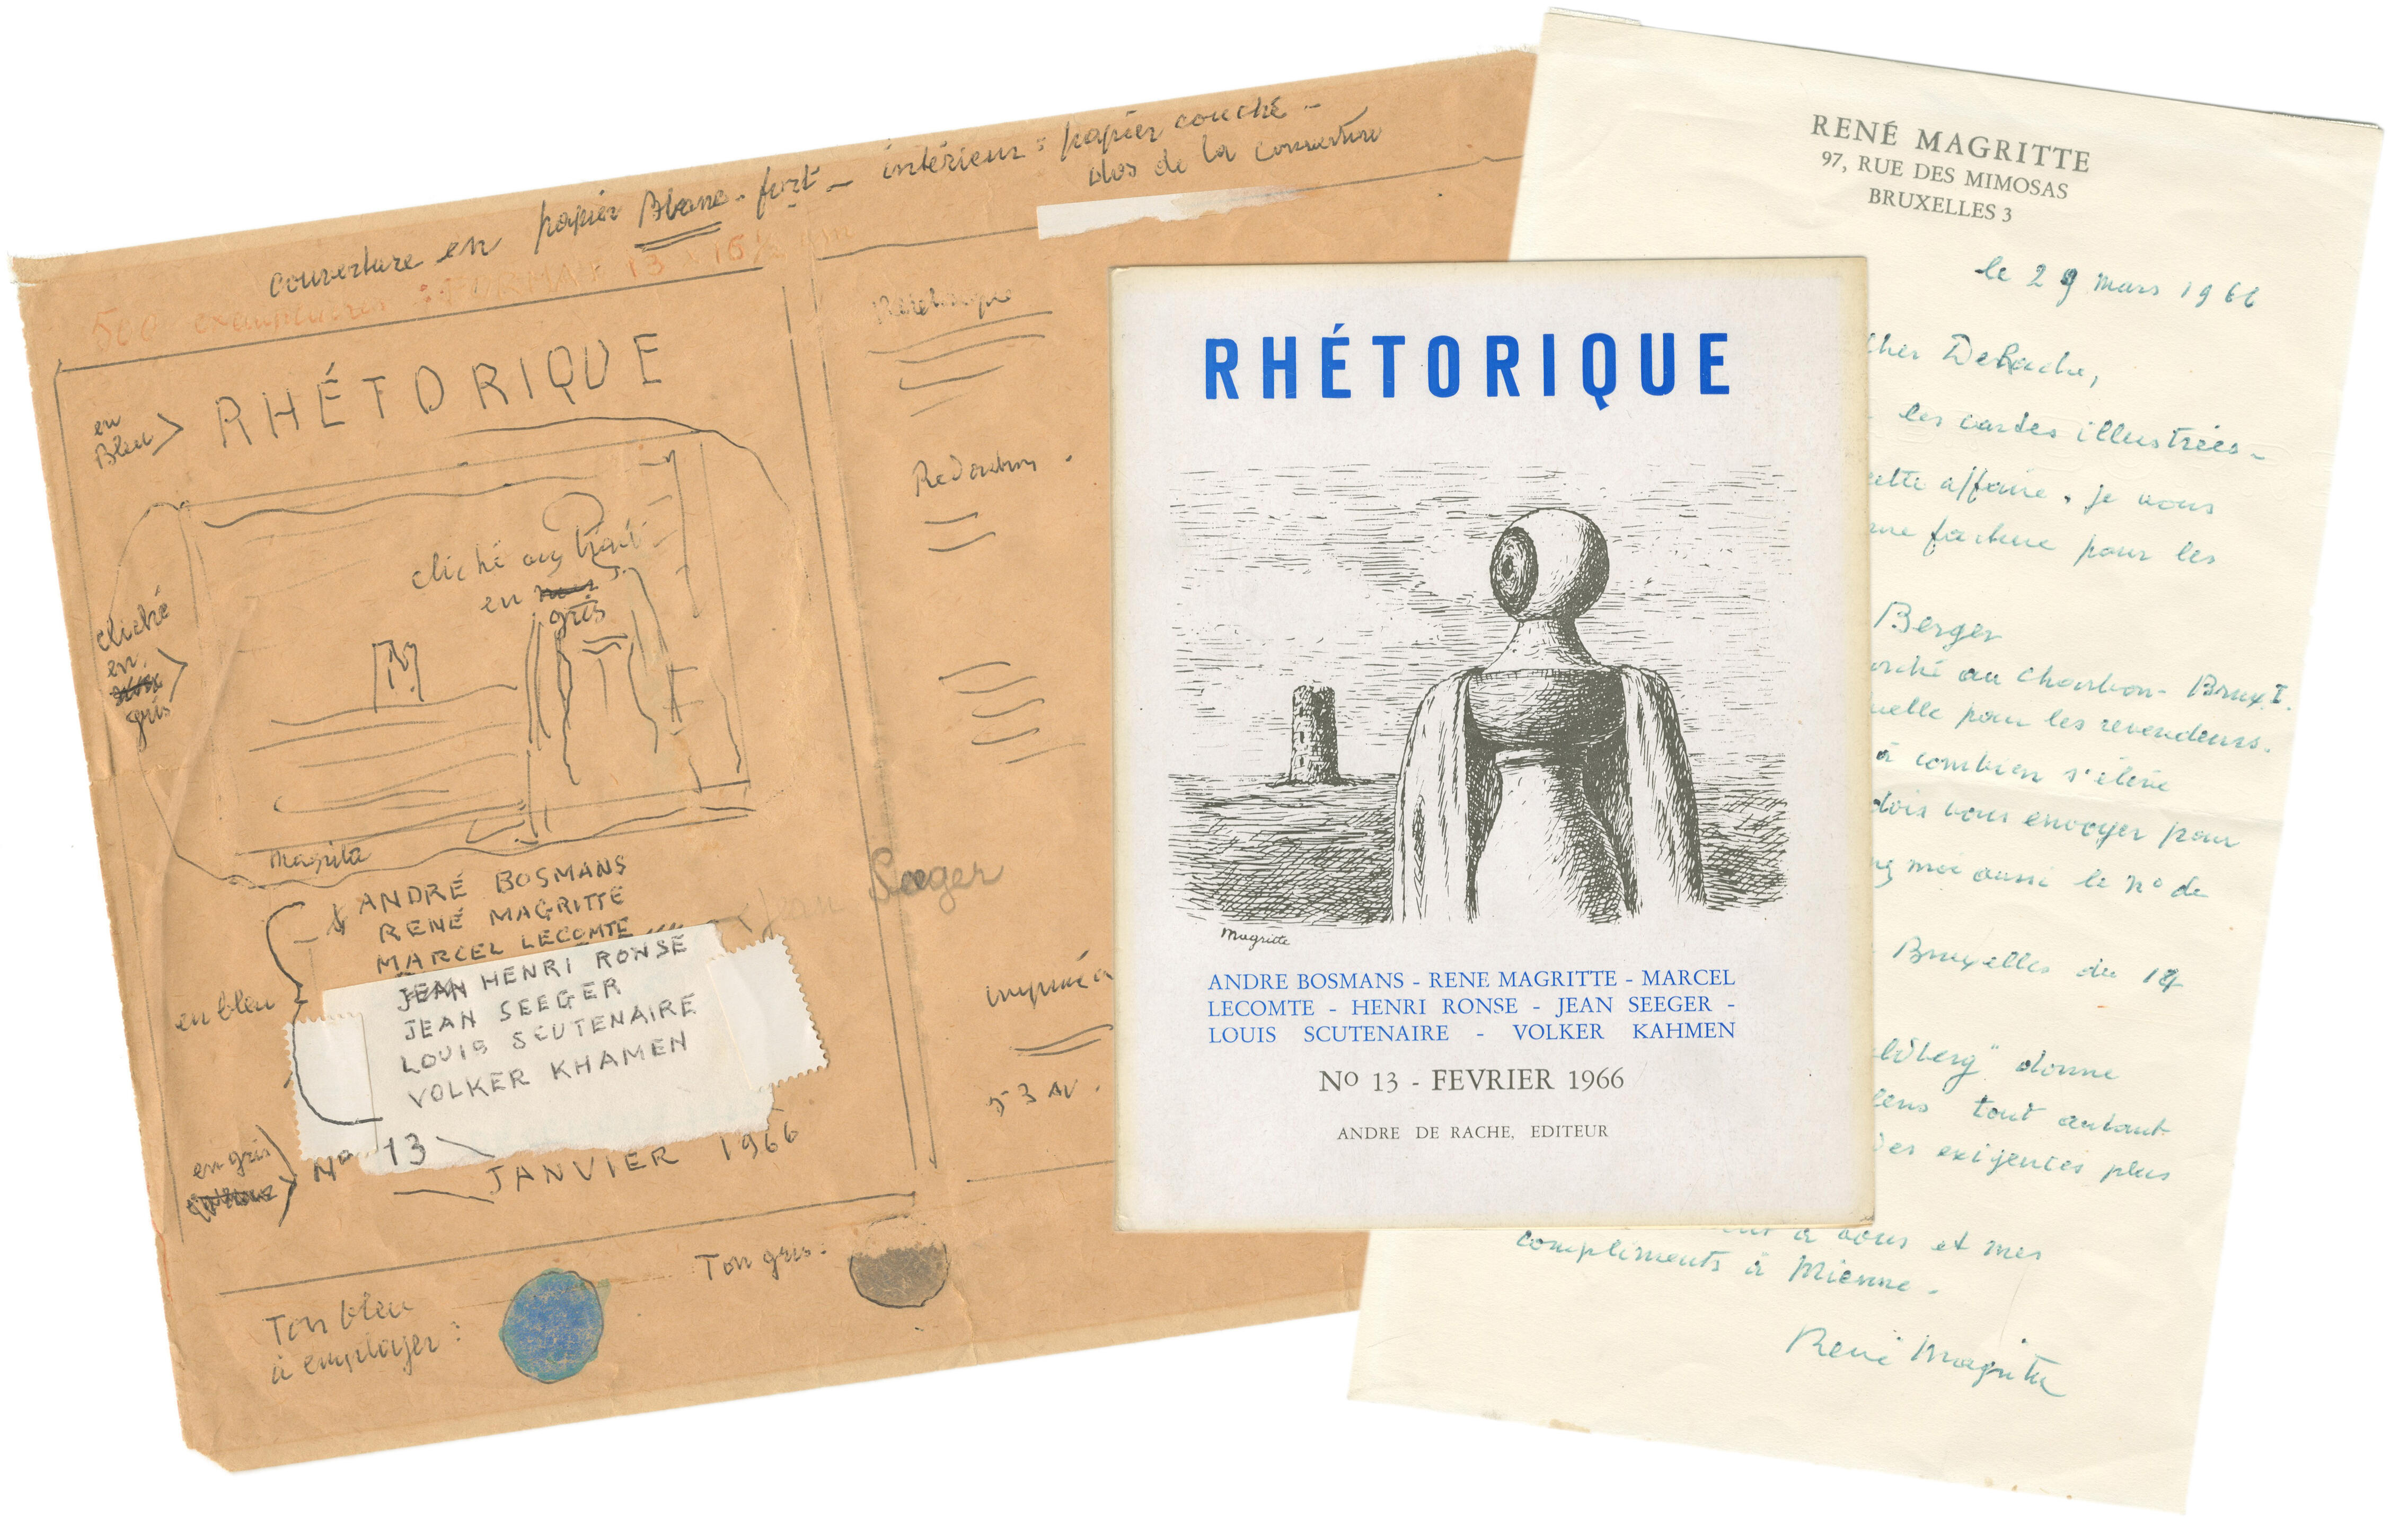 couverture en papier Blanc fort - intérieur : papier couché -
dos de la couverture
500 exemplaires : FORMAT 13 x 15½ cm
en
Bleu
RHÉTORIQUE
cliché au trait
en noir
gris
cliché
en
gris
Magritte
ANDRÉ BOSMANS
RENÉ MAGRITTE
MARCEL LECOMTE
Jean Seeger
JEAN HENRI RONSE
JEAN SEEGER
LOUIS SCUTENAIRE
VOLKER KHAMEN
en bleu
en gris
No 13
JANVIER 1966
Ton bleu
à employer :
Ton gris :
Rhétorique
Rédaction
imprimé
53 AV.
RHÉTORIQUE
Magritte
ANDRE BOSMANS - RENE MAGRITTE - MARCEL
LECOMTE - HENRI RONSE - JEAN SEEGER -
LOUIS SCUTENAIRE - VOLKER KAHMEN
No 13 - FEVRIER 1966
ANDRE DE RACHE, EDITEUR
RENÉ MAGRITTE
97, RUE DES MIMOSAS
BRUXELLES 3
le 29 mars 1966
cher DeRache,
les cartes illustrées -
cette affaire, je vous
une facture pour les
Berger
arché au Charbon - Brux. I.
uelle pour les revendeurs.
à combien s'élève
dois vous envoyer pour
moi aussi le no de
Bruxelles du 14
donne
tout autant
des exigences plus
à vous et mes
compliments à
René Magritte